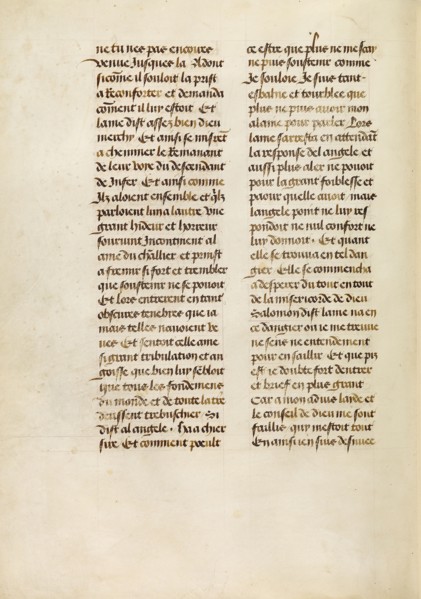 ne tu nes pas encores
venue Jusques la Adont
sicōme il souloit la prist
a Reconforter et demanda
cōment il luy estoit Et
lame dist assez bien dieu
merchy Et ainsi se misrēt
a cheminer le Remanant
de leur voye du descendant
de Infer Et ainsi comme
Ilz aloient ensemble et qlz
parloient lun a lautre vne
grant hideur et horreur
souruint Incontment al
ame du challier et prinst
a fremir si fort et trembler
que soustenir ne se pouoit
Et lors entrerent en tant
obscures tenebres que ia
mais telles nauoient ve
ues Et sentoit celle ame
si grant tribulation et an
goisse que bien luy sēbloit
que tous les fondemens
du monde et de toute la tre
deussent trebuschier Si
dist al angele . ha a chier
sire Et comment poeult
ce estre que plus ne me scay
ne puis soustenir comme
Je souloie Je suis tant
esbahie et tourblee que
plus ne puis auoir mon
alaine pour parler Lors
lame sarresta en attendāt
la response del angele et
aussi plus aler ne pouoit
pour la grant foiblesse et
paour quelle auoit mais
langele point ne luy res
pondoit ne nul confort ne
luy donnoit . Et quant
elle se trouua en tel dan
gier Elle se commencha
a desperer du tout en tout
de la misericorde de dieu
Salomon dist lame na en
ce dangier ou ie me treuue
ne sens ne entendement
pour en saillir Et que pis
est ie doubte fort dentrer
et brief en plus grant
Car a mon aduis laide et
le conseil de dieu me sont
faillis qui mestoit tout
En ainsi en suis desnuee